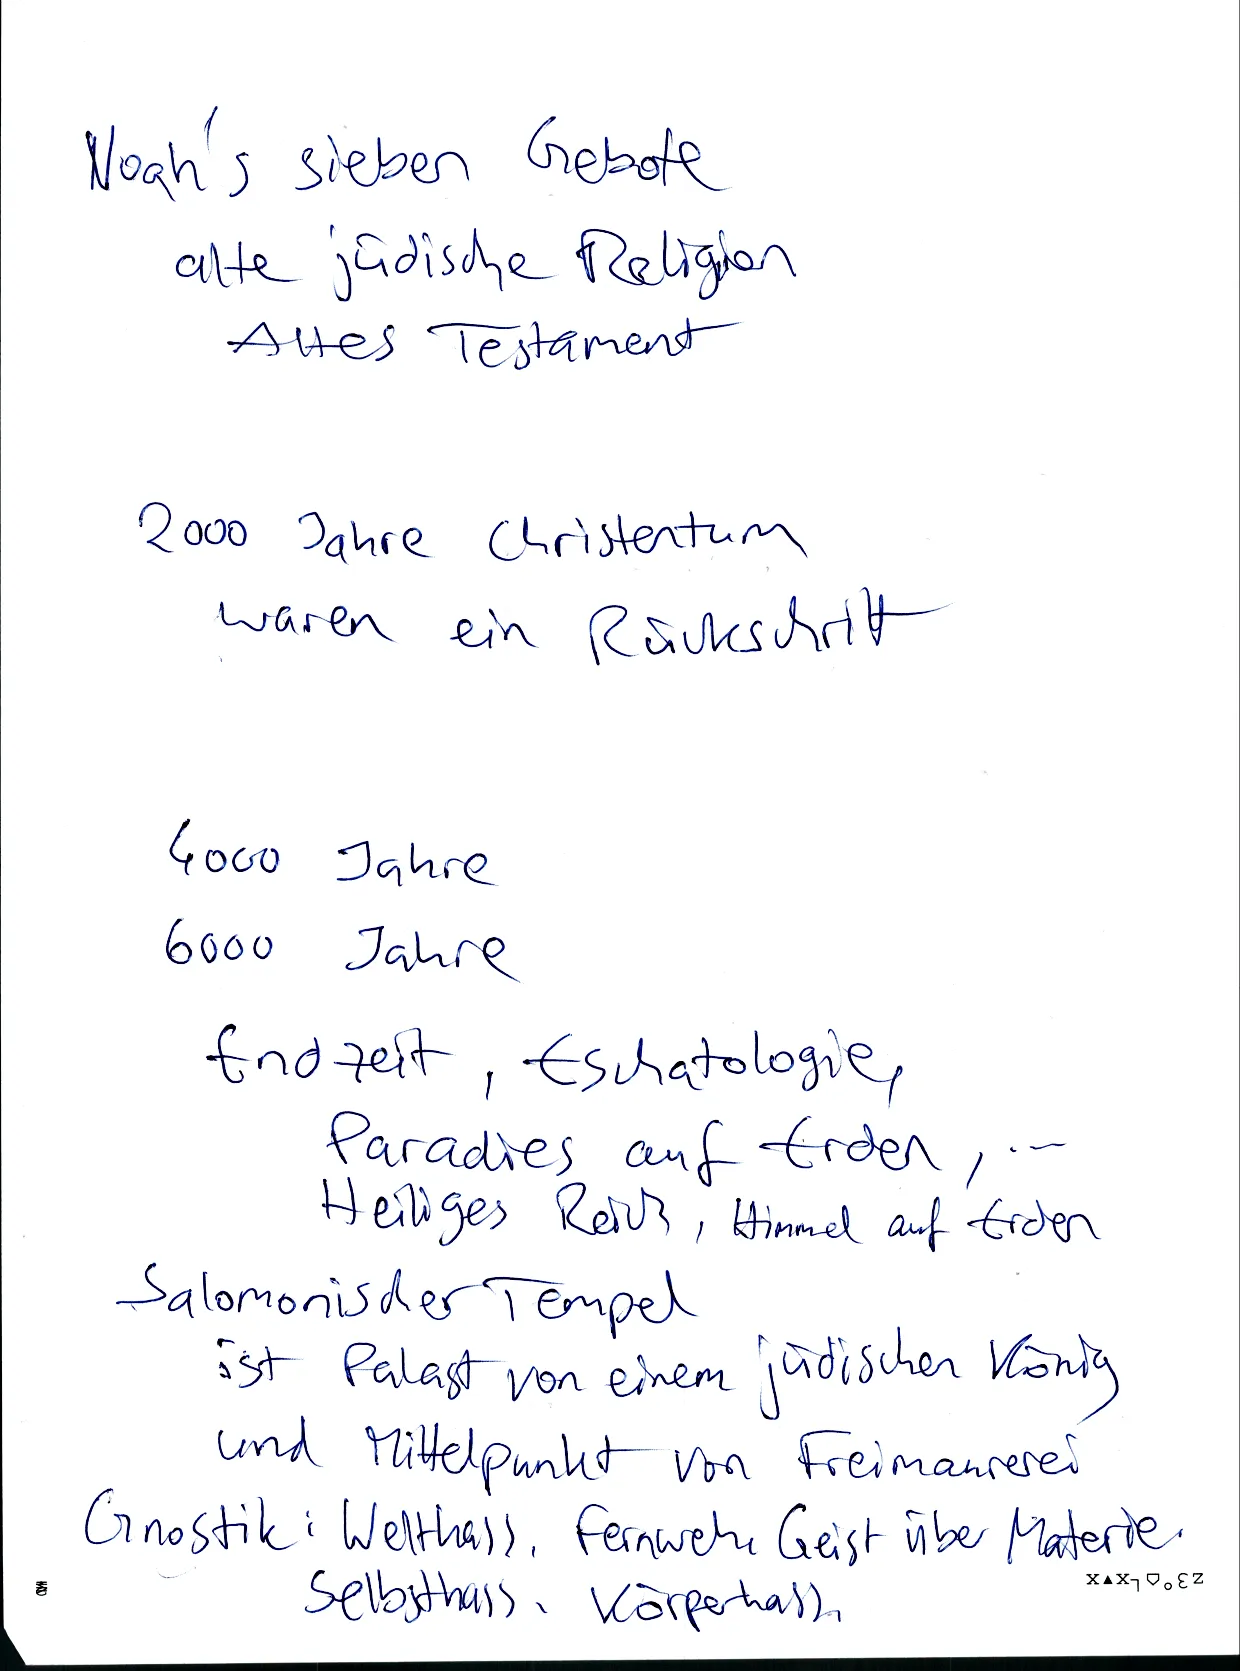 Noah's sieben Gebote
alte jüdische Religion
Altes Testament
2000 Jahre Christentum
waren ein Rückschritt
4000 Jahre
6000 Jahre
Endzeit, Eschatologie,
Paradies auf Erden, ...
Heiliges Reich, Himmel auf Erden
Salomonischer Tempel
ist Palast von einem jüdischen König
und Mittelpunkt von Freimaurerei
Gnostik: Welthass. Fernweh. Geist über Materie.
Selbsthass. Körperhass.